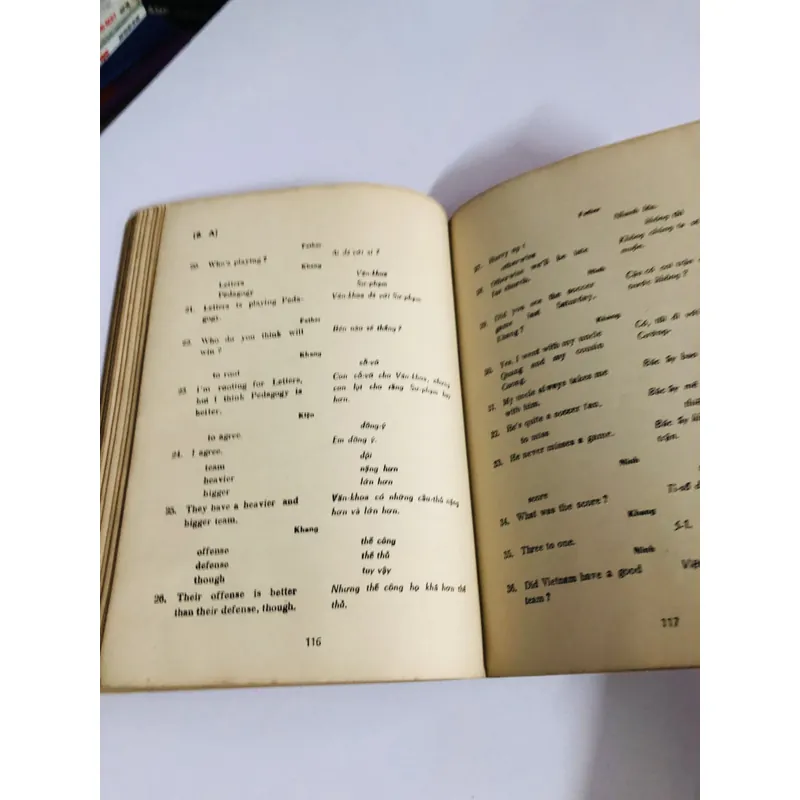 [8 A]
Father
20. Who's playing ? Ai đá với ai ?
Khang
Letters Văn-khoa
Pedagogy Sư-phạm
21. Letters is playing Peda- Văn-khoa đá với Sư-phạm
gogy.
Father
22. Who do you think will Bên nào sẽ thắng ?
win ?
Khang
to root cổ-võ
23. I'm rooting for Letters, Con cổ-võ cho Văn-khoa, nhưng
but I think Pedagogy is con lại cho rằng Sư-phạm hay
better. hơn.
đồng-ý
to agree. Em đồng ý.
24. I agree.
team đội
heavier nặng hơn
bigger lớn hơn
25. They have a heavier and Văn-khoa có những cầu-thủ nặng
bigger team. hơn và lớn hơn.
Khang
offense thế công
defense thế thủ
though tuy vậy
26. Their offense is better Nhưng thế công họ khá hơn thế
than their defense, though. thủ.
116
Father
27. Hurry up !
otherwise không thì
28. Otherwise we'll be late Không chúng ta sẽ
for church. muộn.
Ninh
29. Did you see the soccer
game last Saturday,
Khang ? trước không ?
Khang
30. Yes, I went with my uncle Có, tôi đi với
Quang and my cousin
Cuong. Cường.
31. My uncle always takes me Bác ấy luôn
with him.
32. He's quite a soccer fan. Bác ấy mê
to miss
33. He never misses a game. Bác ấy không
trận.
Ninh
score Tỉ-số
34. What was the score ?
Khang
35. Three to one.
Ninh
36. Did Vietnam have a good Việt
team ?
117